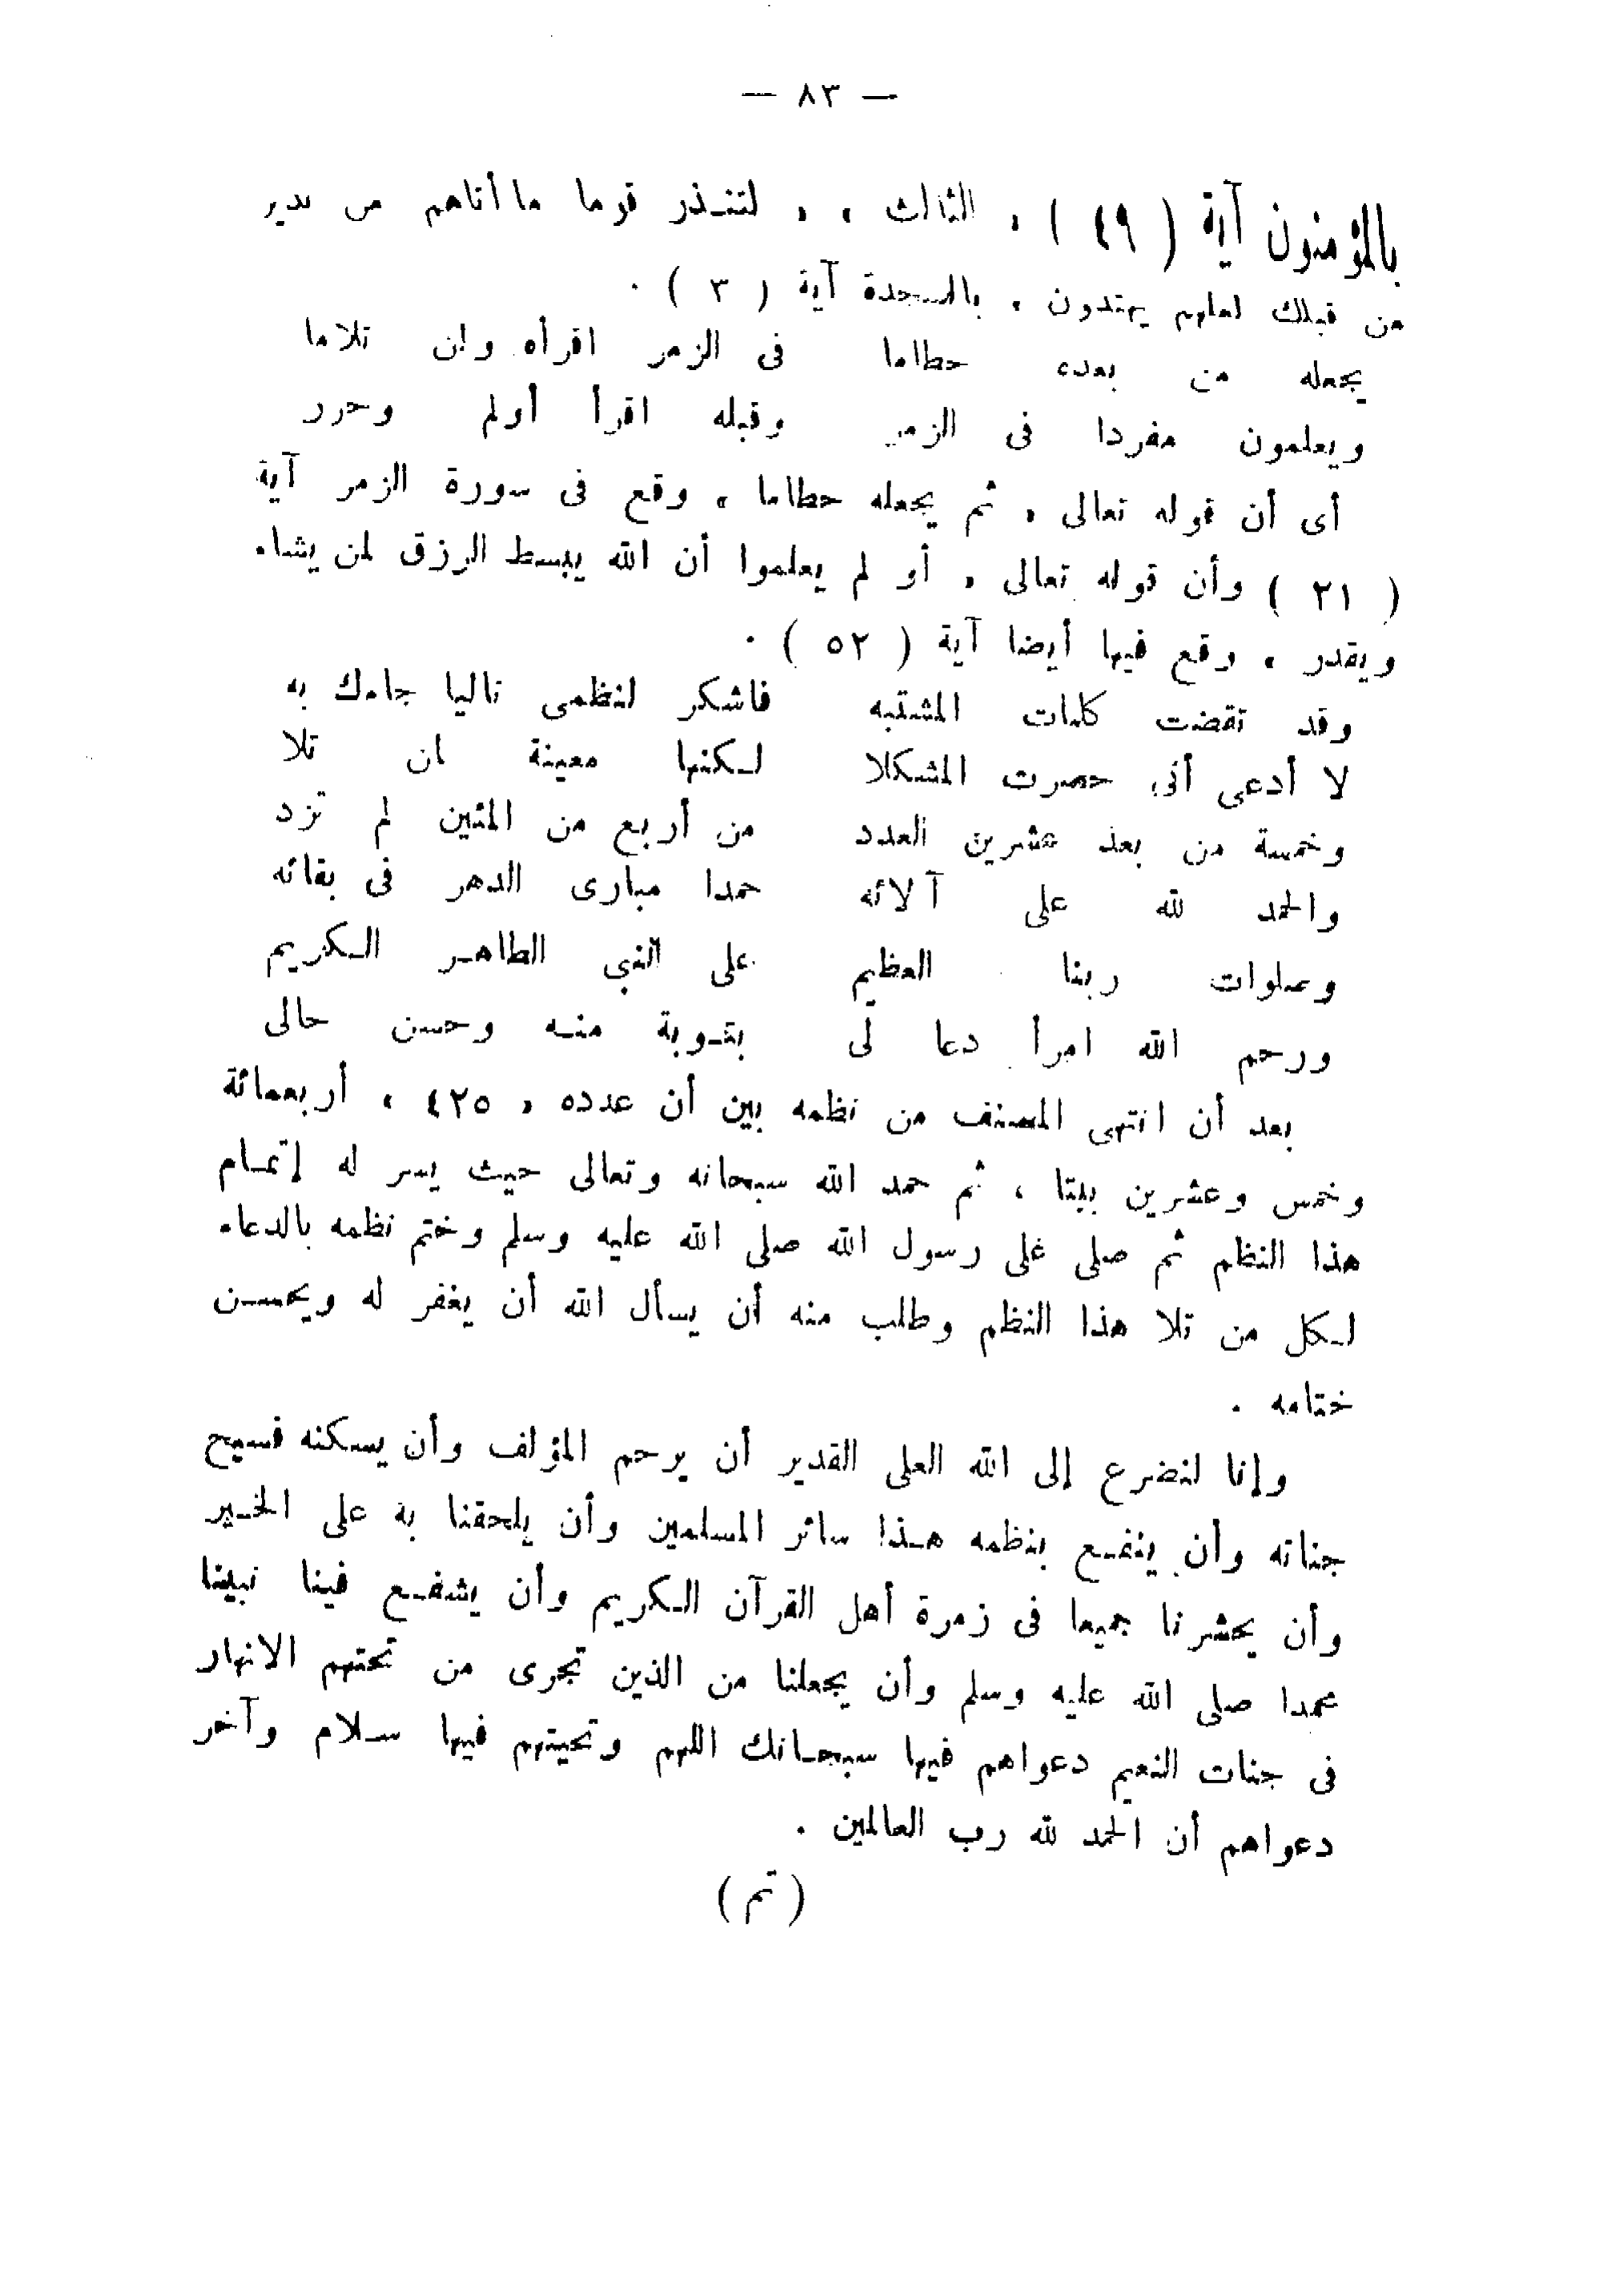 — ٨٣ —
بالمؤمنون آية ( ٤٩ ) ، الثالث ، ، لتنذر قوما ما أتاهم من نذير
من قبلك لعلهم يهتدون ، بالسجدة آية ( ٣ ) .
يجعله من بعده حطاما فى الزمر اقرأه وإن تلاما
ويعلمون مفردا فى الزمر وقبله اقرأ أولم وحرر
أى أن قوله تعالى ، ثم يجعله حطاما ، وقع فى سورة الزمر آية
( ٢١ ) وأن قوله تعالى ، أو لم يعلموا أن الله يبسط الرزق لمن يشاء
ويقدر ، وقع فيها أيضا آية ( ٥٢ ) .
وقد تقضت كلمات المشتبه فاشكر لنظمى تاليا جاءك به
لا أدعى أنى حصرت المشكلا لكنها معينة لمن تلا
وخمسة من بعد عشرين العدد من أربع من المئين لم تزد
والحمد لله على آلائه حمدا مبارى الدهر فى بقائه
وصلوات ربنا العظيم على النبى الطاهر الكريم
ورحم الله امرأ دعا لى بتوبة منه وحسن حالى
بعد أن انتهى المصنف من نظمه بين أن عدده ، ٤٢٥ ، أربعمائة
وخمس وعشرين بيتا ، ثم حمد الله سبحانه وتعالى حيث يسر له إتمام
هذا النظم ثم صلى على رسول الله صلى الله عليه وسلم وختم نظمه بالدعاء
لكل من تلا هذا النظم وطلب منه أن يسأل الله أن يغفر له ويحسن
ختامه .
وإنا لنضرع إلى الله العلى القدير أن يرحم المؤلف وأن يسكنه فسيح
جناته وأن ينفع بنظمه هذا سائر المسلمين وأن يلحقنا به على الخير
وأن يحشرنا جميعا فى زمرة أهل القرآن الكريم وأن يشفع فينا نبينا
محمدا صلى الله عليه وسلم وأن يجعلنا من الذين تجرى من تحتهم الانهار
فى جنات النعيم دعواهم فيها سبحانك اللهم وتحيتهم فيها سلام وآخر
دعواهم أن الحمد لله رب العالمين .
( تم )